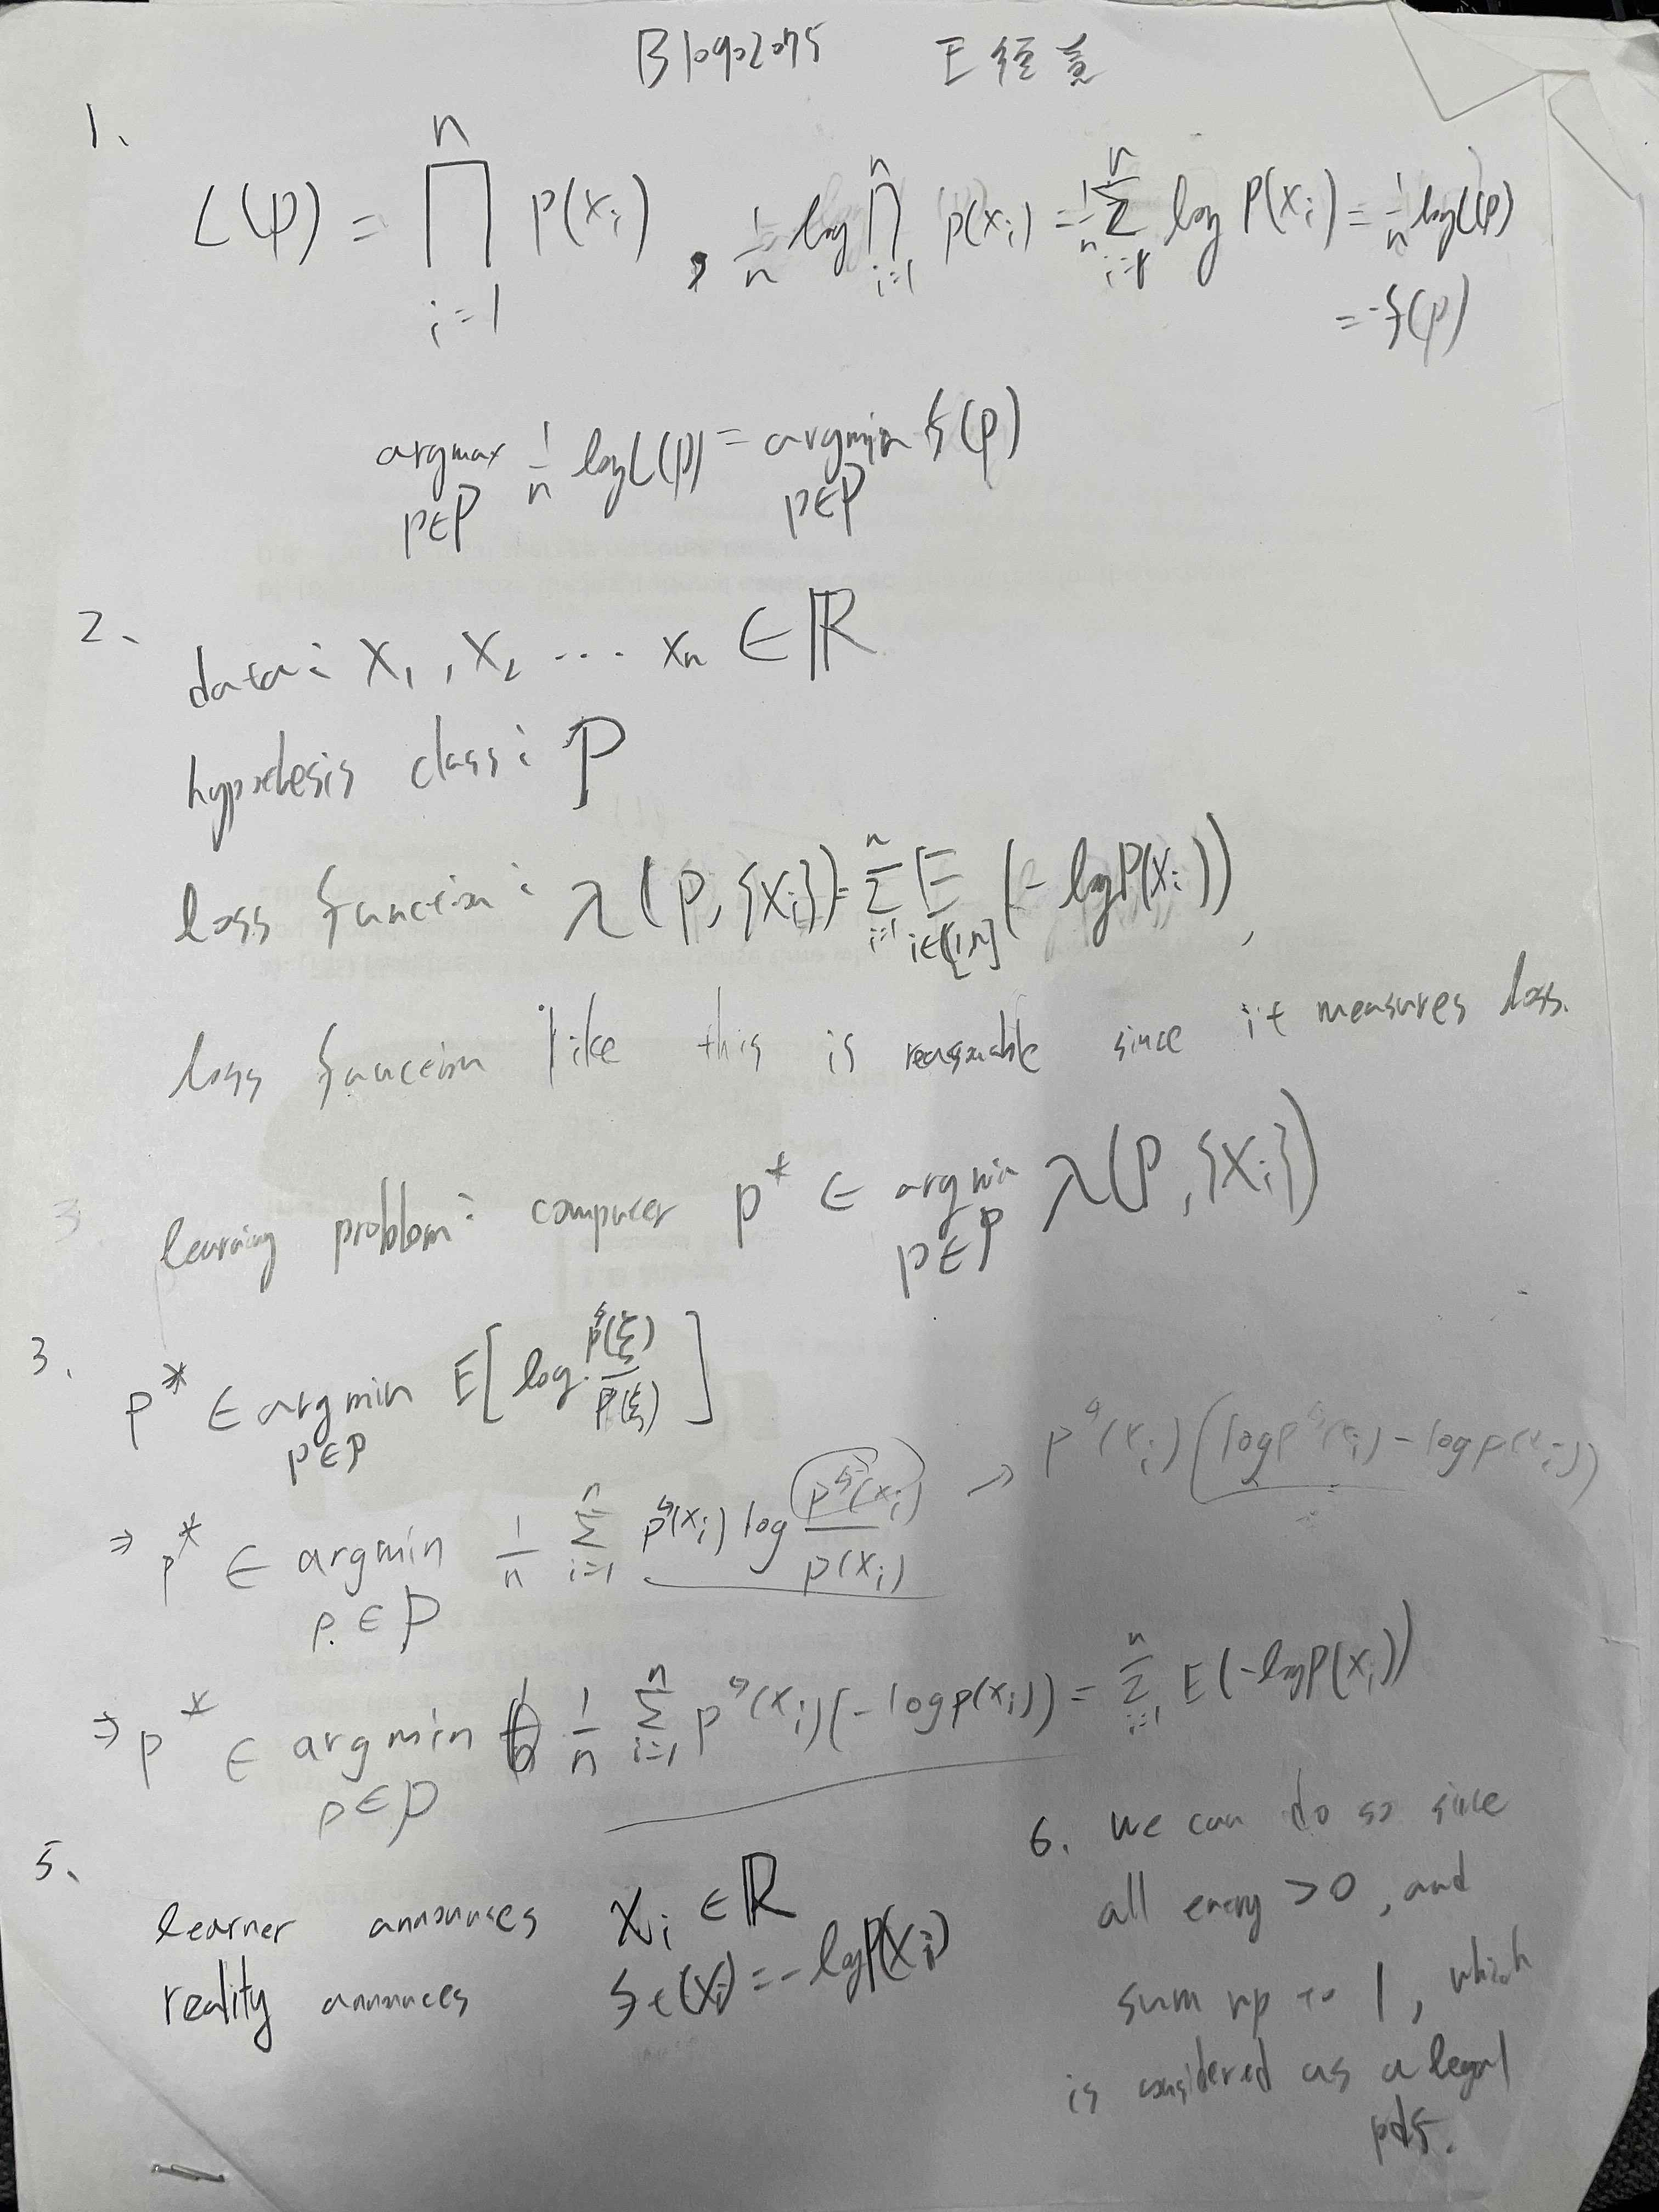 B10902075 王徑意
1、
L(p) = ∏_{i=1}^{n} p(x_i) , 1/n log ∏_{i=1}^{n} p(x_i) = 1/n Σ_{i=1}^{n} log P(x_i) = 1/n log L(p)
= -f(p)
argmax_{p∈P} 1/n log L(p) = argmin_{p∈P} f(p)
2、
data: x_1, x_2 ... x_n ∈ ℝ
hypothesis class: P
loss function: λ(p, {x_i}) = Σ_{i=1}^{n} E_{i∈[1,n]} (- log P(x_i)),
loss function like this is reasonable since it measures loss.
learning problem: compute p* ∈ argmin_{p∈P} λ(P, {x_i})
3.
p* ∈ argmin_{p∈P} E[log p^♮(ξ)/p(ξ)]
⇒ p* ∈ argmin_{p∈P} 1/n Σ_{i=1}^{n} p^♮(x_i) log p^♮(x_i)/p(x_i) → p^♮(x_i)(log p^♮(x_i) - log p(x_i))
⇒ p* ∈ argmin_{p∈P} 1/n Σ_{i=1}^{n} p^♮(x_i)(- log p(x_i)) = Σ_{i=1}^{n} E(- log P(x_i))
5、
learner announces x_i ∈ ℝ
reality announces f_t(x_i) = - log P(x_i)
6. we can do so since
all entry > 0, and
sum up to 1, which
is considered as a legal
pdf.